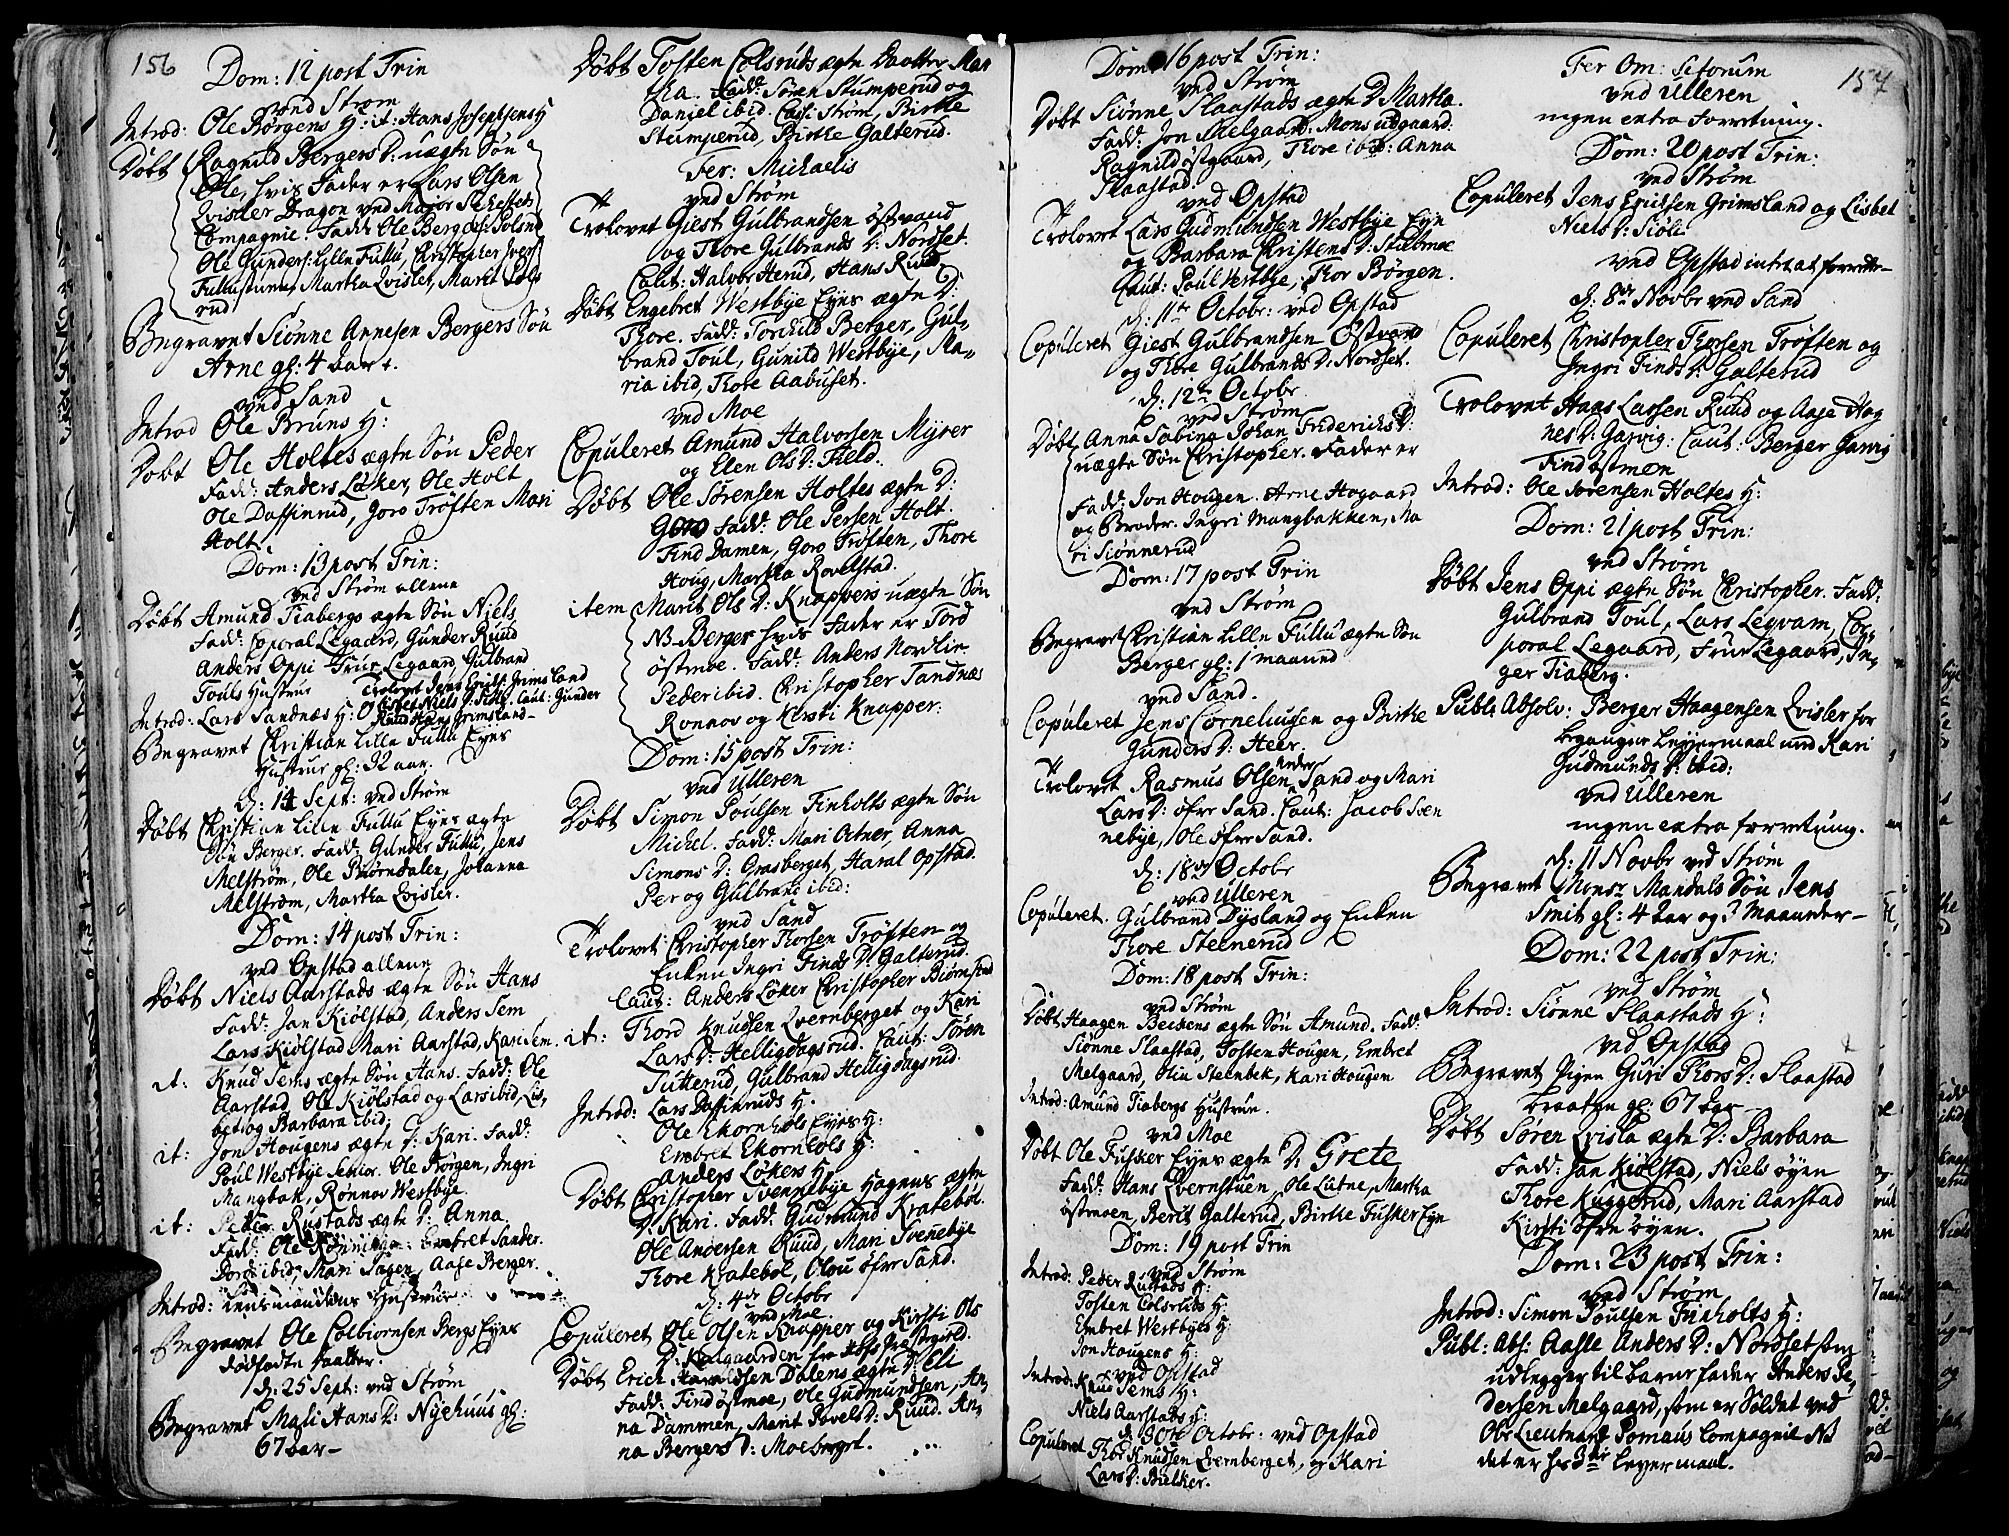 156
Dom: 12 post Trin
ved Strøm
Introd: Ole Børgens H: it: Hans Josephsens H
Døbt Ragnild Bergers D: uægte Søn
Ole, hvis Fader er Lars Olsen
Qvisler Dragon ved Major
Compagnie. Fadd: Ole Berg
Ole Gunders: Lille Fullu, Christopher
Fullustuen, Martha Qvisler, Marit
rud
Begravet Siønne Annesen Bergers Søn
Arne gl: 4 aar
ved Sand
Introd Ole Bruns H:
Døbt Ole Holtes ægte Søn Peder
Fadd: Anders Løker, Ole Holt
Ole Daffinrud, Goro Trøften Mari
Holt
Dom: 13 post Trin:
ved Strøm allene
Døbt Amund Tiabergs ægte Søn Niels
Fadd: Coporal Legaard, Gunder Ruud
Anders Oppi Frue Legaard, Gulbrand
Touls Hustrue
Trolovet Jens Erichs: Grimsland
Introd: Lars Sandnæs H: og Lisbet Niels D: Siøli. Caut: Gunder
Ruud Hans Grimsland
Begravet Christian Lille Fullu Eyes
Hustrue gl: 32 aar.
d: 14 Sept: ved Strøm
Døbt Christian Lille Fullu Eyes ægte
Søn Berger. Fadd: Gunder Fullu, Jens
Melstrøm, Ole Biørndalen, Johanna
Melstrøm, Martha Qvisler.
Dom: 14 post Trin:
ved Opstad allene
Døbt Niels Aarstads ægte Søn Hans
Fadd: Jan Kiølstad, Anders Sem
Lars Kiølstad Mari Aarstad, Kari Sem.
it: Knud Sems ægte Søn Hans. Fadd: Ole
Aarstad, Ole Kiølstad og Lars ibid, Lis,
bet og Barbara ibid.
it: Jon Hougens ægte D: Kari. Fadd:
Poul Westbye Senior. Ole Børgen, Ingri
Mangbak, Ronnov Westbye.
it: Peder Rustads ægte D: Anna
Fadd: Ole Embret Sander.
Dorde ibid, Mari Sagen, Aase Berger.
Introd: Hustrue
Begravet Ole Colbiørnsen Bergs Eyes
dødfødte Daatter.
d: 25 Sept: ved Strøm
Begravet Mari Hans D: Nyehuus gl:
67 aar
Døbt Tosten Colsruds ægte Daatter Mar
tha. Fadd: Søren Stumperud og
Daniel ibid. Strøm, Birthe
Stumperud, Birthe Galterud.
Fer: Michaelis
ved Strøm
Trolovet Giest Gulbrandsen Østvand
og Thore Gulbrands D: Nordset.
Caut: Halvor Herud, Hans Ruud
Døbt Engebret Westbye Eyes ægte D:
Thore. Fadd: Torchild Berger, Gul,
brand Toul, Gunild Westbye, Ma,
ria ibid, Thore Aabuset.
ved Moe
Copuleret Amund Halvorsen Myrer
og Elen Ols D: Field.
Døbt Ole Sørensen Holtes ægte D:
Goro Fadd: Ole Persen Holt.
Find Damen, Goro Trøften, Thore
Houg, Martha Rovelstad.
item Marit Ols D: Knappers uægte Søn
NB Berger hvis Fader er Tord
Østmoe. Fadd: Anders Nordlie
Peder ibid. Christopher Sandnæs
Ronnov og Kirsti Knapper.
Dom: 15 post Trin:
ved Ulleren
Døbt Simon Poulsen Finholts ægte Søn
Michel. Fadd: Mari Octner, Anna
Simons D: Grasberget, Haral Opstad.
Per og Gulbrand ibid:
ved Sand
Trolovet Christopher Thorsen Trøften og
Enken Ingri Finds D: Galterud.
Caut: Anders Løker Christopher Biørnstad
it: Thord Knudsen Qvernberget og Kari
Lars D: Helligdagsrud. Caut: Søren
Sukkerud, Gulbrand Helligdagsrud.
Introd: Lars Daffinruds H:
Ole Ekornhols Eyes H:
Embret Ekornhols H:
Anders Løkers H:
Døbt Christopher Svennebye Hagens ægte
D: Kari. Fadd: Gudmund Kratebøl
Ole Andersen Ruud, Mari Svenebye
Thore Kratebøl, Olou øfre Sand.
d: 4de Octobr
ved Moe
Copuleret Ole Olsen Knapper og Kirsti Ols
D: Kalgaarden fra Hofs Præstegield.
Døbt Erich Haraldsen Dalens ægte D: Eli
Fadd: Find Østmoe, Ole Gudmundsen, An,
na Dammen, Marit Povels D: Ruud. An,
na Bergers D: Moeberget.
Dom: 16 post Trin:
ved Strøm
Døbt Siønne Slaastads ægte D: Martha.
Fadd: Jon Melgaard: Mons udgaard:
Ragnild østgaard, Thore ibid: Anna
Slaastad.
ved Opstad
Trolovet Lars Gudmundsen Westbye Eye
og Barbara Christens D: Stubmoe
Caut: Poul Westbye, Thor Børgen.
d: 11te Octobr: ved Opstad
Copuleret Giest Gulbrandsen Østvand
og Thore Gulbrands D: Nordset.
d: 12te Octobr
ved Strøm
Døbt Anna Sabina Johan Friderichs D:
uægte Søn Christopher. Fader er
Fadd: Jon Hougen. Arne Hogaard
og Broder. Ingri Mangbakken, Ma
ri Siønnerud
Dom: 17 post Trin
ved Strøm
Begravet Christian Lille Fullu ægte Søn
Berger gl: 1 maaned
ved Sand.
Copuleret Jens Corneliussen og Birthe
Gunders D: Heer.
Trolovet Rasmus Olsen Neder Sand og Mari
Lars D: øfre Sand. Caut: Jacob Sven
nebye, Ole øfre Sand.
d: 18de Octobr
ved Ulleren
Copuleret. Gulbrand Dysland og Enken
Thore Steenerud
Dom: 18 post Trin:
ved Strøm
Døbt Haagen Beckens ægte Søn Amund. Fadd:
Siønne Slaastad, Tosten Hougen, Embret
Melgaard, Olia Steenbek, Kari Hougen
Introd: Amund Tiabergs Hustrue.
ved Moe
Døbt Ole Fusker Eyes ægte D: Grete
Fadd: Hans Qvernstuen, Ole Lutne, Martha
Østmoen, Berit Galterud, Birthe Fusker Eye
Dom: 19 post Trin
ved Strøm
Introd: Peder Rustads H:
Tosten Colsruds H:
Embret Westbyes H:
Jon Hougens H:
ved Opstad
Introd: Knud Sems H:
Niels Aarstads H:
d: 30te Octobr: ved Opstad
Copuleret Thor Knudsen Qvernberget, og Kari
Lars D: Bulker.
157
Fer Om: Sctorum
ved Ulleren
ingen extra forretning.
Dom: 20 post Trin:
ved Strøm
Copuleret Jens Erichsen Grimsland og Lisbet
Niels D: Siøli
ved Opstad intet at forrette
d: 8de Novbr ved Sand
Copuleret Christopher Thorsen Trøften og
Ingri Finds D: Galterud
Trolovet Hans Larsen Ruud og Aase Hog
nes D: Garvig: Caut: Berger Garvig
Find Østmoen
Introd: Ole Sørensen Holtes H:
Dom: 21 post Trin:
ved Strøm
Døbt Jens Oppi ægte Søn Christopher. Fadd:
Gulbrand Toul, Lars Legvam, Cor,
poral Legaard, Frue Legaard, In,
ger Tiaberg.
Publ: Absolv: Berger Haagensen Qvisler for
begangen Leyermaal med Kari
Gudmunds D: ibid:
ved Ulleren
ingen extra forretning.
d: 11 Novbr ved Strøm
Begravet Monsr Mandals Søn Jens
Smit gl: 4 aar og 3 Maaneder
Dom: 22 post Trin:
ved Strøm
Introd: Siønne Slaastads H:
ved Opstad
Begravet Pigen Guri Thors D: Slaastad
braaten gl: 67 aar
Døbt Søren Qvisla ægte D: Barbara
Fadd: Jan Kiølstad, Niels øyen
Thore Kuggerud, Mari Aarstad
Kirsti øfre øyen.
Dom: 23 post Trin:
ved Strøm
Introd: Simon Poulsen Finholts H:
Publ: Abs: Aasle Anders D: Nordset som
udlegger til barne fader Anders Pe,
dersen Melgaard, som er Soldat ved
Obr Lieutnard Pomaus Compagnie NB
det er hs 3de Leyermaal.